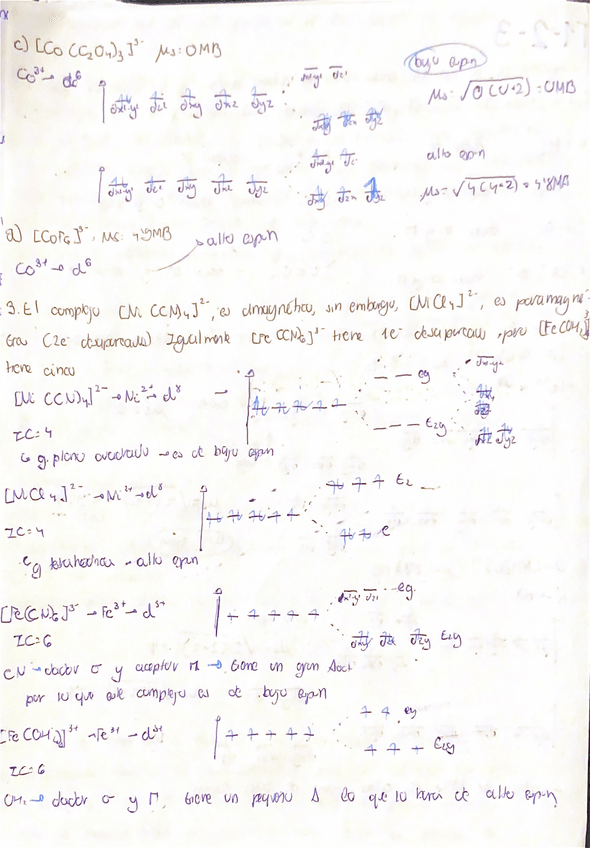 c) [Co (C2O4)3]3- μs: 0MB
bajo espin
Co3+ → d6
dx2-y2 dz2
dx2-y2 dz2 dxy dxz dyz
μs = √0(0+2) = 0MB
dxy dzx dyz
alto espin
dx2-y2 dz2 dxy dxz dyz
dxy dzx dyz
μs = √4(4+2) = 4'8MB
d) [CoF6]3-, μs: 4'9MB → alto espin
Co3+ → d6
3. El complejo [Ni(CN)4]2-, es diamagnético, sin embargo, [NiCl4]2-, es paramagné-
tico (2e- desapareados) Igualmente [Fe(CN)6]3- tiene 1e- desapareado, pero
tiene cinco
[Ni(CN)4]2- → Ni2+ → d8 →
eg
dx2-y2
IC=4
t2g
dxz dyz
g. plano cuadrado → es de bajo espin
[NiCl4]2- → Ni2+ → d8
t2
IC=4
e
g tetraédrica → alto espin
[Fe(CN)6]3- → Fe3+ → d5
dx2-y2 dz2 eg
IC=6
t2g
CN → dador σ y aceptor π → tiene un gran Δoct
por lo que este complejo es de bajo espin
eg
→ Fe3+ →
t2g
IC=6
OH2 → dador σ y π, tiene un pequeño Δ lo que lo hará de alto espin